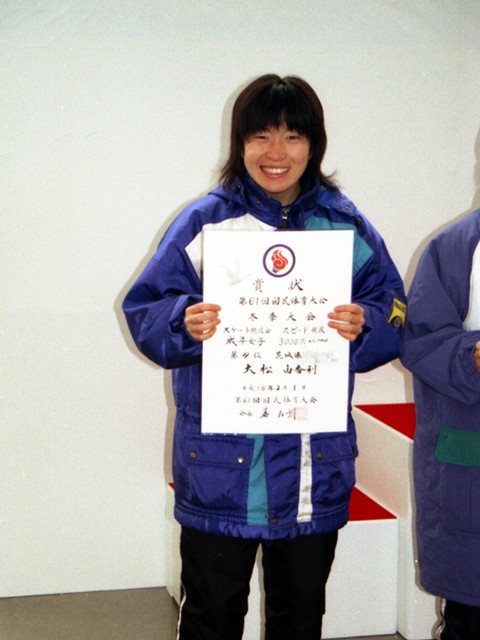 賞状
第61回国民体育大会
冬季大会
スケート競技会 スピード競技
成年女子 3000m
第4位 茨城県
大松 由香利
平成18年2月1日
第61回国民体育大会
会長 森